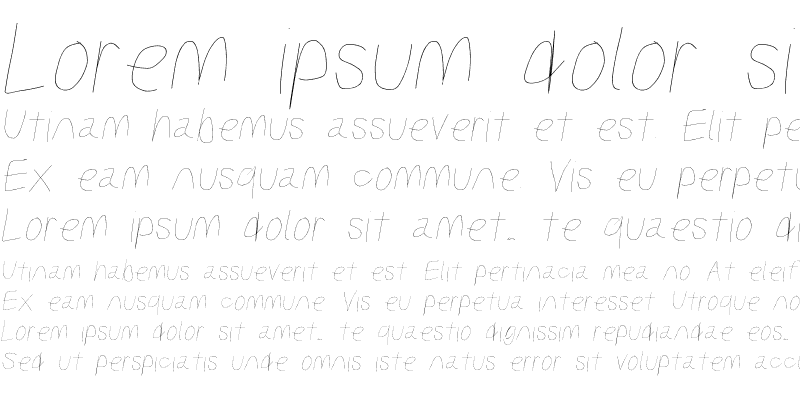 Lorem ipsum dolor si
Utinam habemus assueverit et est. Elit pe
Ex eam nusquam commune. Vis eu perpetu
Lorem ipsum dolor sit amet.. te quaestio di
Utinam habemus assueverit et est Elit pertinacia mea no At eleif
Ex eam nusquam commune Vis eu perpetua interesset Utroque no
Lorem ipsum dolor sit amet.. te quaestio dignissim repudiandae eos..
Sed ut perspiciatis unde omnis iste natus error sit voluptatem accu